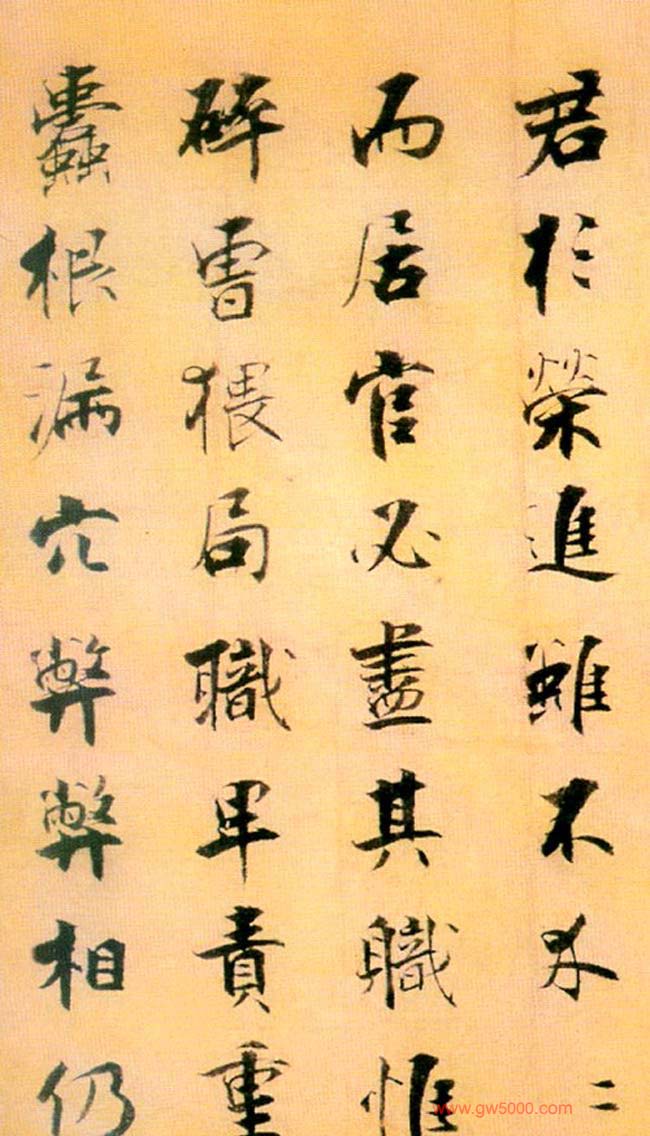 君於榮進雖不〻
而居官必盡其職惟
碎曹猥局職卑責重
蠹根漏穴弊弊相仍
www.gw5000.com